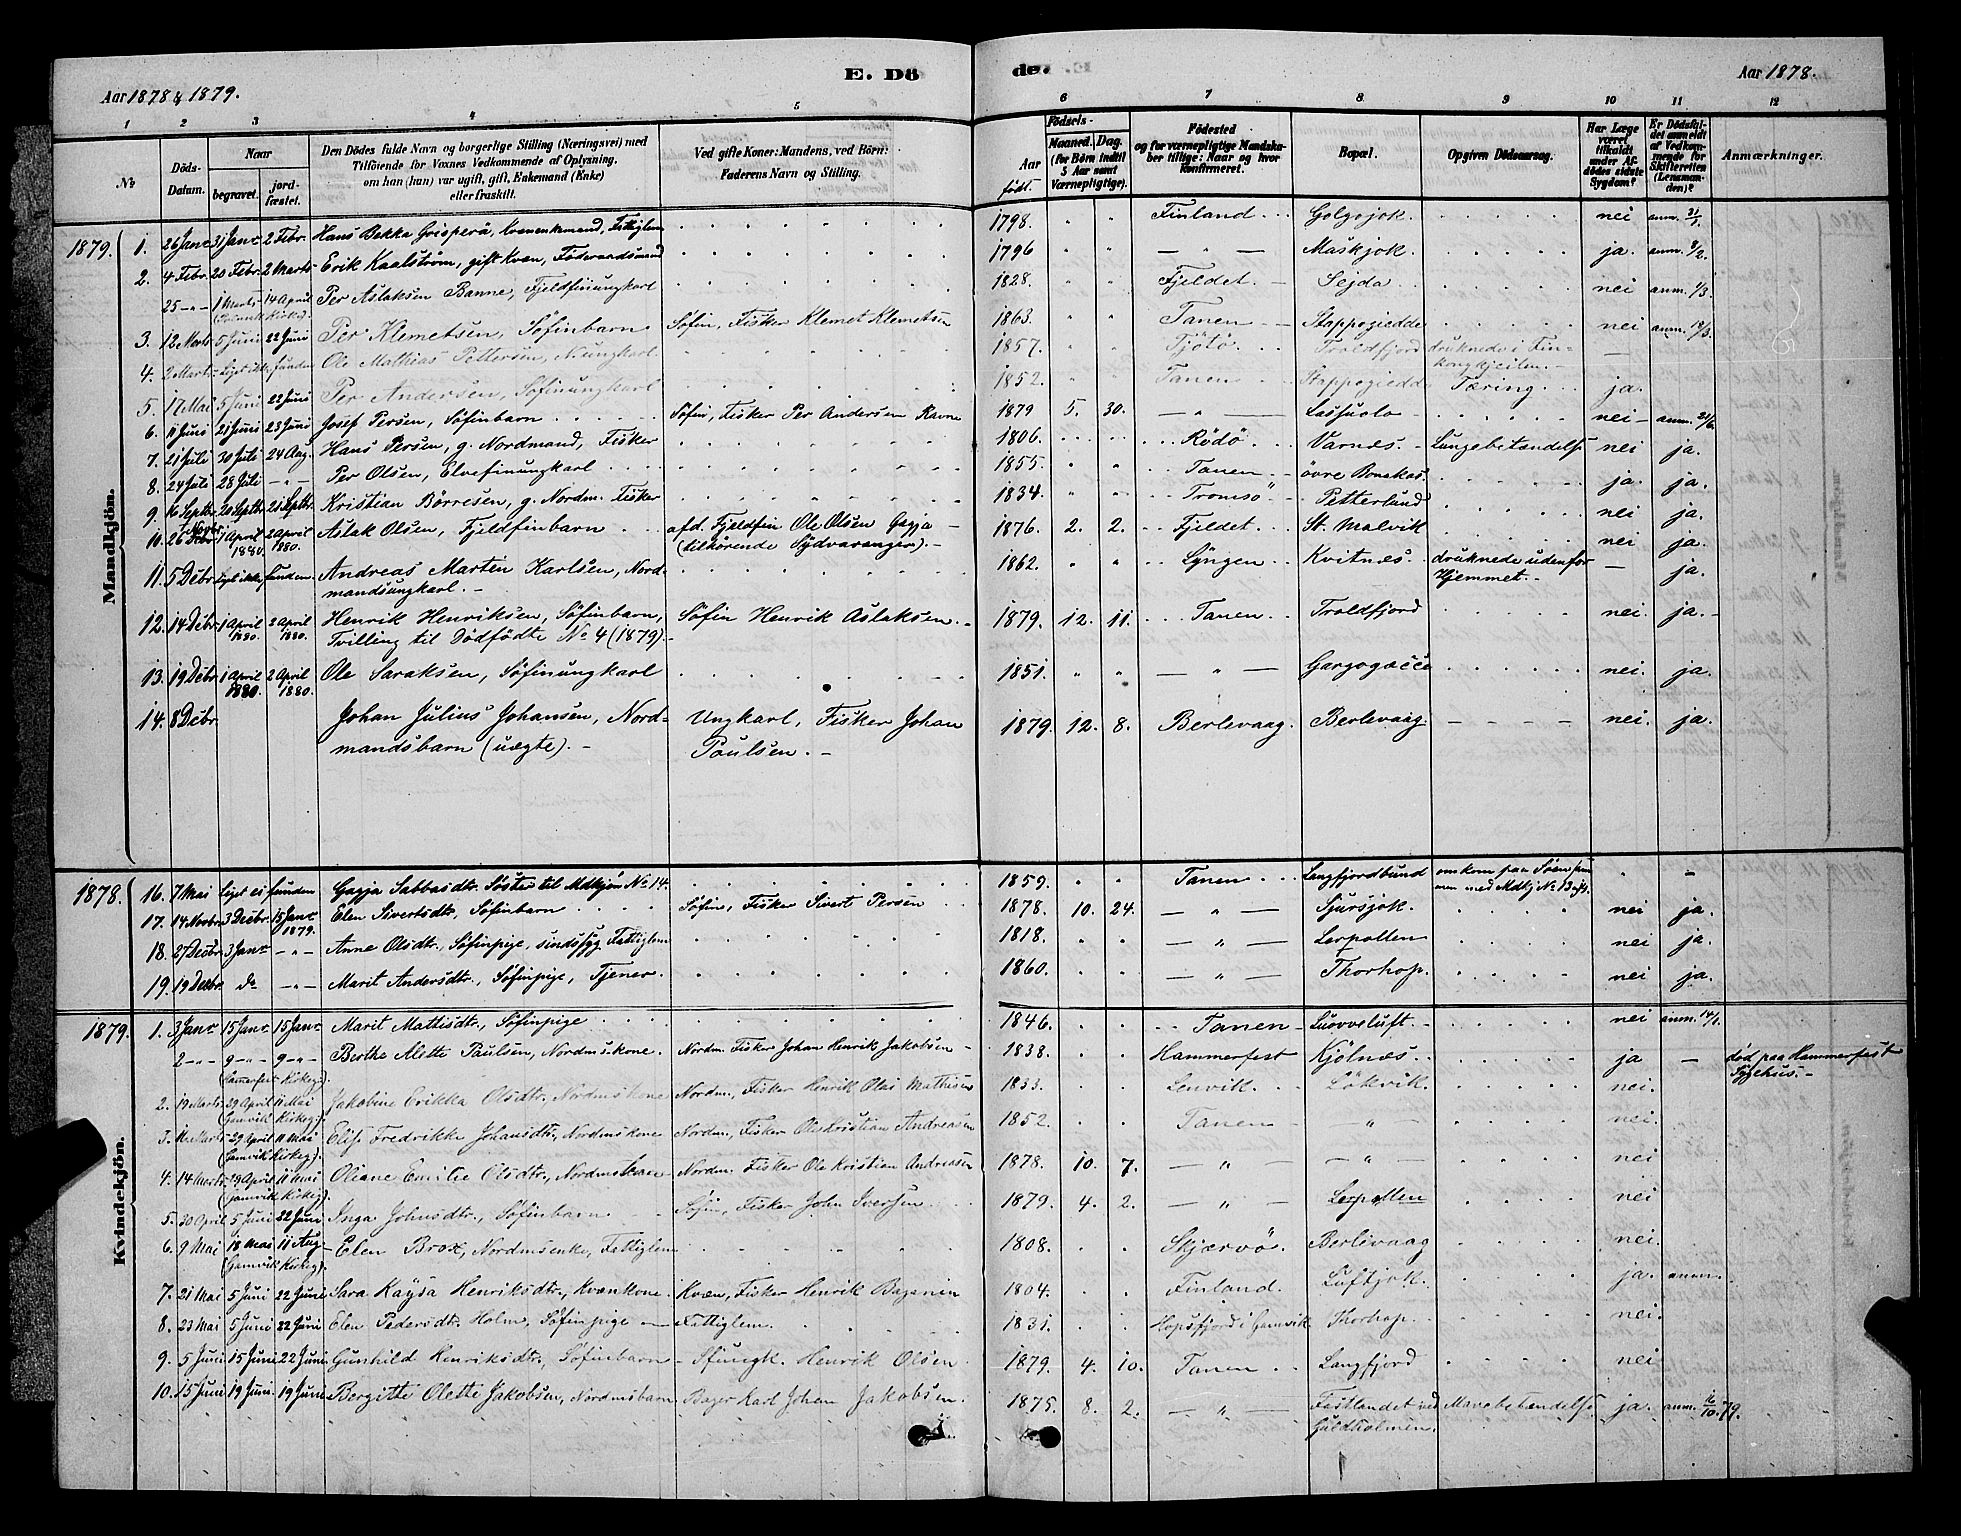 Aar 1878 & 1879.
E. Dö
de.
Aar 1878.
1 2 3 4 5 6 7 8 9 10 11 12
No
Döds-Datum.
Naar
begravet.
jord-fæstet.
Den Dödes fulde Navn og borgerlige Stilling (Næringsvei) med
Tilföiende for Voxnes Vedkommende af Oplysning,
om han (hun) var ugift, gift, Enkemand (Enke)
eller fraskilt.
Ved gifte Koner: Mandens, ved Börn:
Faderens Navn og Stilling.
Aar født.
Födsels-
Maaned. Dag.
(for Börn indtil
5 Aar samt
Værnepligtige).
Födested
og for værnepligtige Mandska-
ber tillige: Naar og hvor
konfirmeret.
Bopæl.
Opgiven Dödsaarsag.
Har Læge
været
tilkaldt
under Af-
dödes sidste
Sygdom?
Er Dödsfal-
det anmeldt
af Vedkom-
mende for
Skifteretten
(Lensman-
den)?
Anmærkninger.
Mandkjön.
1879. 1. 26 Janr 31 Janr 2 Febr. Hans Bekka Grisperä, Kvænenkemand, Fattiglem 1798. Finland Golgojok. nei anm. 31/1.
2. 4 Febr. 20 Febr. 2 Marts Erik Kaalström, gift Kvæn, Föderaadsmand 1796 — " — Maskjok. ja. anm. 8/2.
25 -"- 1 Marts 14 April Per Aslaksen Banne, Fjeldfinungkarl 1828. Fjeldet. Sejda nei anm. 1/3.
3. 12 Marts 5 Juni 22 Juni Per Klemetsen, Söfinbarn Söfin, Fisker Klemet Klemetsen 1863. Tanen Stappogiedde nei anm. 14/3.
4. 2 Marts Liget ikke funden Ole Mathias Pettersen, N.ungkarl. 1857. Tjötö Troldfjord druknede i Fin-
kongkjeilen. —
5. 17 Mai 5 Juni 22 Juni Per Andersen, Söfinungkarl 1852. Tanen Stappogiedde Tæring ja.
6. 11 Juni 21 Juni 23 Juni Josef Persen, Söfinbarn Söfin, Fisker Per Andersen Ravna 1879 5. 30. — " — Lassuolo nei anm. 21/6.
7. 21 Juli 30 Juli 24 Aug. Hans Persen, g. Nordmand, Fisker 1806. Rödö Varnæs. Lungebetændelse nei ja.
8. 24 Juli 28 Juli -"- Per Olsen, Elvefinungkarl 1855. Tanen övre Bonakas. ja. ja.
9. 16 Septbr 20 Septbr 21 Septbr. Kristian Börresen, g. Nordm. Fisker 1834. Tromsö Petterlund nei ja.
10. 26 1 April 1880. 2 April 1880. Aslak Olsen, Fjeldfinbarn afd. Fjeldfin Ole Olsen Gajja 1876. 2. 2. Fjeldet. St. Malvik nei ja.
(tilhörende Sydvaranger). —
11. 5 Debr. Liget ikke funden. Andreas Martin Karlsen, Nord-
mandsungkarl. — 1862. Lyngen Kvitnæs. druknede udenfor
Hjemmet. — — ja.
12. 14 Debr. 1 April 1880. 2 April 1880. Henrik Henriksen, Söfinbarn,
Tvilling til Dödfödte No 4 (1879). — Söfin Henrik Aslaksen. 1879. 12. 11. Tanen Troldfjord nei. ja.
13. 19 Debr. 1 April 1880. 2 April 1880. Ole Saraksen, Söfinungkarl 1851. " — Gargogæcce nei. ja.
14. 8 Debr. Johan Julius Johansen, Nord-
mandsbarn (uægte). — Ungkarl, Fisker Johan
Paulsen. — 1879. 12. 8. Berlevaag. Berlevaag. nei. ja.
Kvindekjön.
1878. 16. 7 Mai Liget ei funden Gajja Sabbasdtr. Söster til Mdkjön No 14. 1859. Tanen Langfjordbund omkom paa Söen sam-
men med Mdkj No 13 og 14.
17. 14 Novbr. 3 Debr. 15 Janr 1879. Elen Sivertsdtr., Söfinbarn Söfin, Fisker Sivert Persen 1878. 10. 24. — " — Sjursjok. nei ja.
18. 27 Decbr. 3 Janr -"- Anne Olsdtr., Söfinpige, sindssyg, Fattiglem 1818. — " — Lerpollen nei ja.
19. 19 Decbr. do -"- Marit Andersdtr., Söfinpige, Tjener. 1860. — " — Thorhop. nei ja.
1879. 1. 3 Janr 15 Janr 15 Janr Marit Mattisdtr., Söfinpige 1846. Tanen Luovveluft. nei anm. 14/1.
2 -"- 9 -"- 9 -"- Berthe Alette Paulsen, Nordmskone. Nordm. Fisker Johan Henrik Jakobsen 1838. Hammerfest Kjölnæs. ja — död paa Hammerfest
Sygehus. —
2. 19 Marts 29 April 11 Mai Jakobine Erikka Olsdtr., Nordmskone Nordm., Fisker Henrik Olai Mathisen 1833. Lenvik. Lökvik. nei.
(Gamvik Kirkeg).
3. 29 April 11 Mai Elis Fredrikke Johansdtr., Nordmskone Nordm., Fisker Ole Kristian Andreasen 1852. Tanen — " — nei
(Gamvik Kirkeg).
4. 14 Marts 29 April 11 Mai Oliane Emilie Olsdtr., Nordm. Nordm. Fisker Ole Kristian Andreasen 1878. 10. 7. — " — — " — nei
(Gamvik Kirkeg).
5. 30 April 5 Juni 22 Juni Inga Johnsdtr., Söfinbarn Söfin, Fisker John Iversen 1879. 4. 2. — " — Lerpollen nei
6. 9 Mai 18 Mai 11 Aug. Elen Brox, Nordmsenke, Fattiglem 1808. Skjærvö. Berlevaag nei.
(Gamvik Kirkeg).
7. 21 Mai 5 Juni 22 Juni Sara Kaysa Henriksdtr., Kvænkone. Kvæn, Fisker Henrik 1804. Finland. Luftjok. ja. anm.
8. 23 Mai 5 Juni 22 Juni Elen Pedersdtr. Holm, Söfinpige — Fattiglem. 1831. Hopsfjord i Gamvik Thorhop. nei.
9. 5 Juni 15 Juni 22 Juni Gunhild Henriksdtr., Söfinbarn — Sfungk. Henrik Olsen. 1879. 4. 10. Tanen Langfjord nei
10. 15 Juni 19 Juni 19 Juni Bergitte Olette Jakobsen, Nordmsbarn Bager Karl Johan Jakobsen. 1875. 8. 2. — " — Fastlandet ved
Guldholmen. Mavebetændelse ja. anm. 16/10. 79.